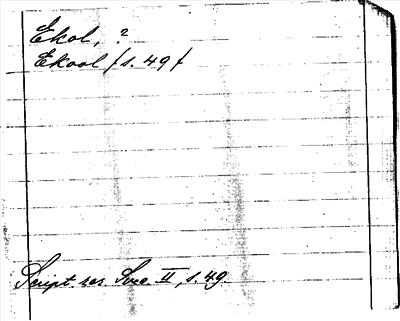 Ekol, ?
Ekool / s. 49 /
Script. rer. Svec. II, s. 49.